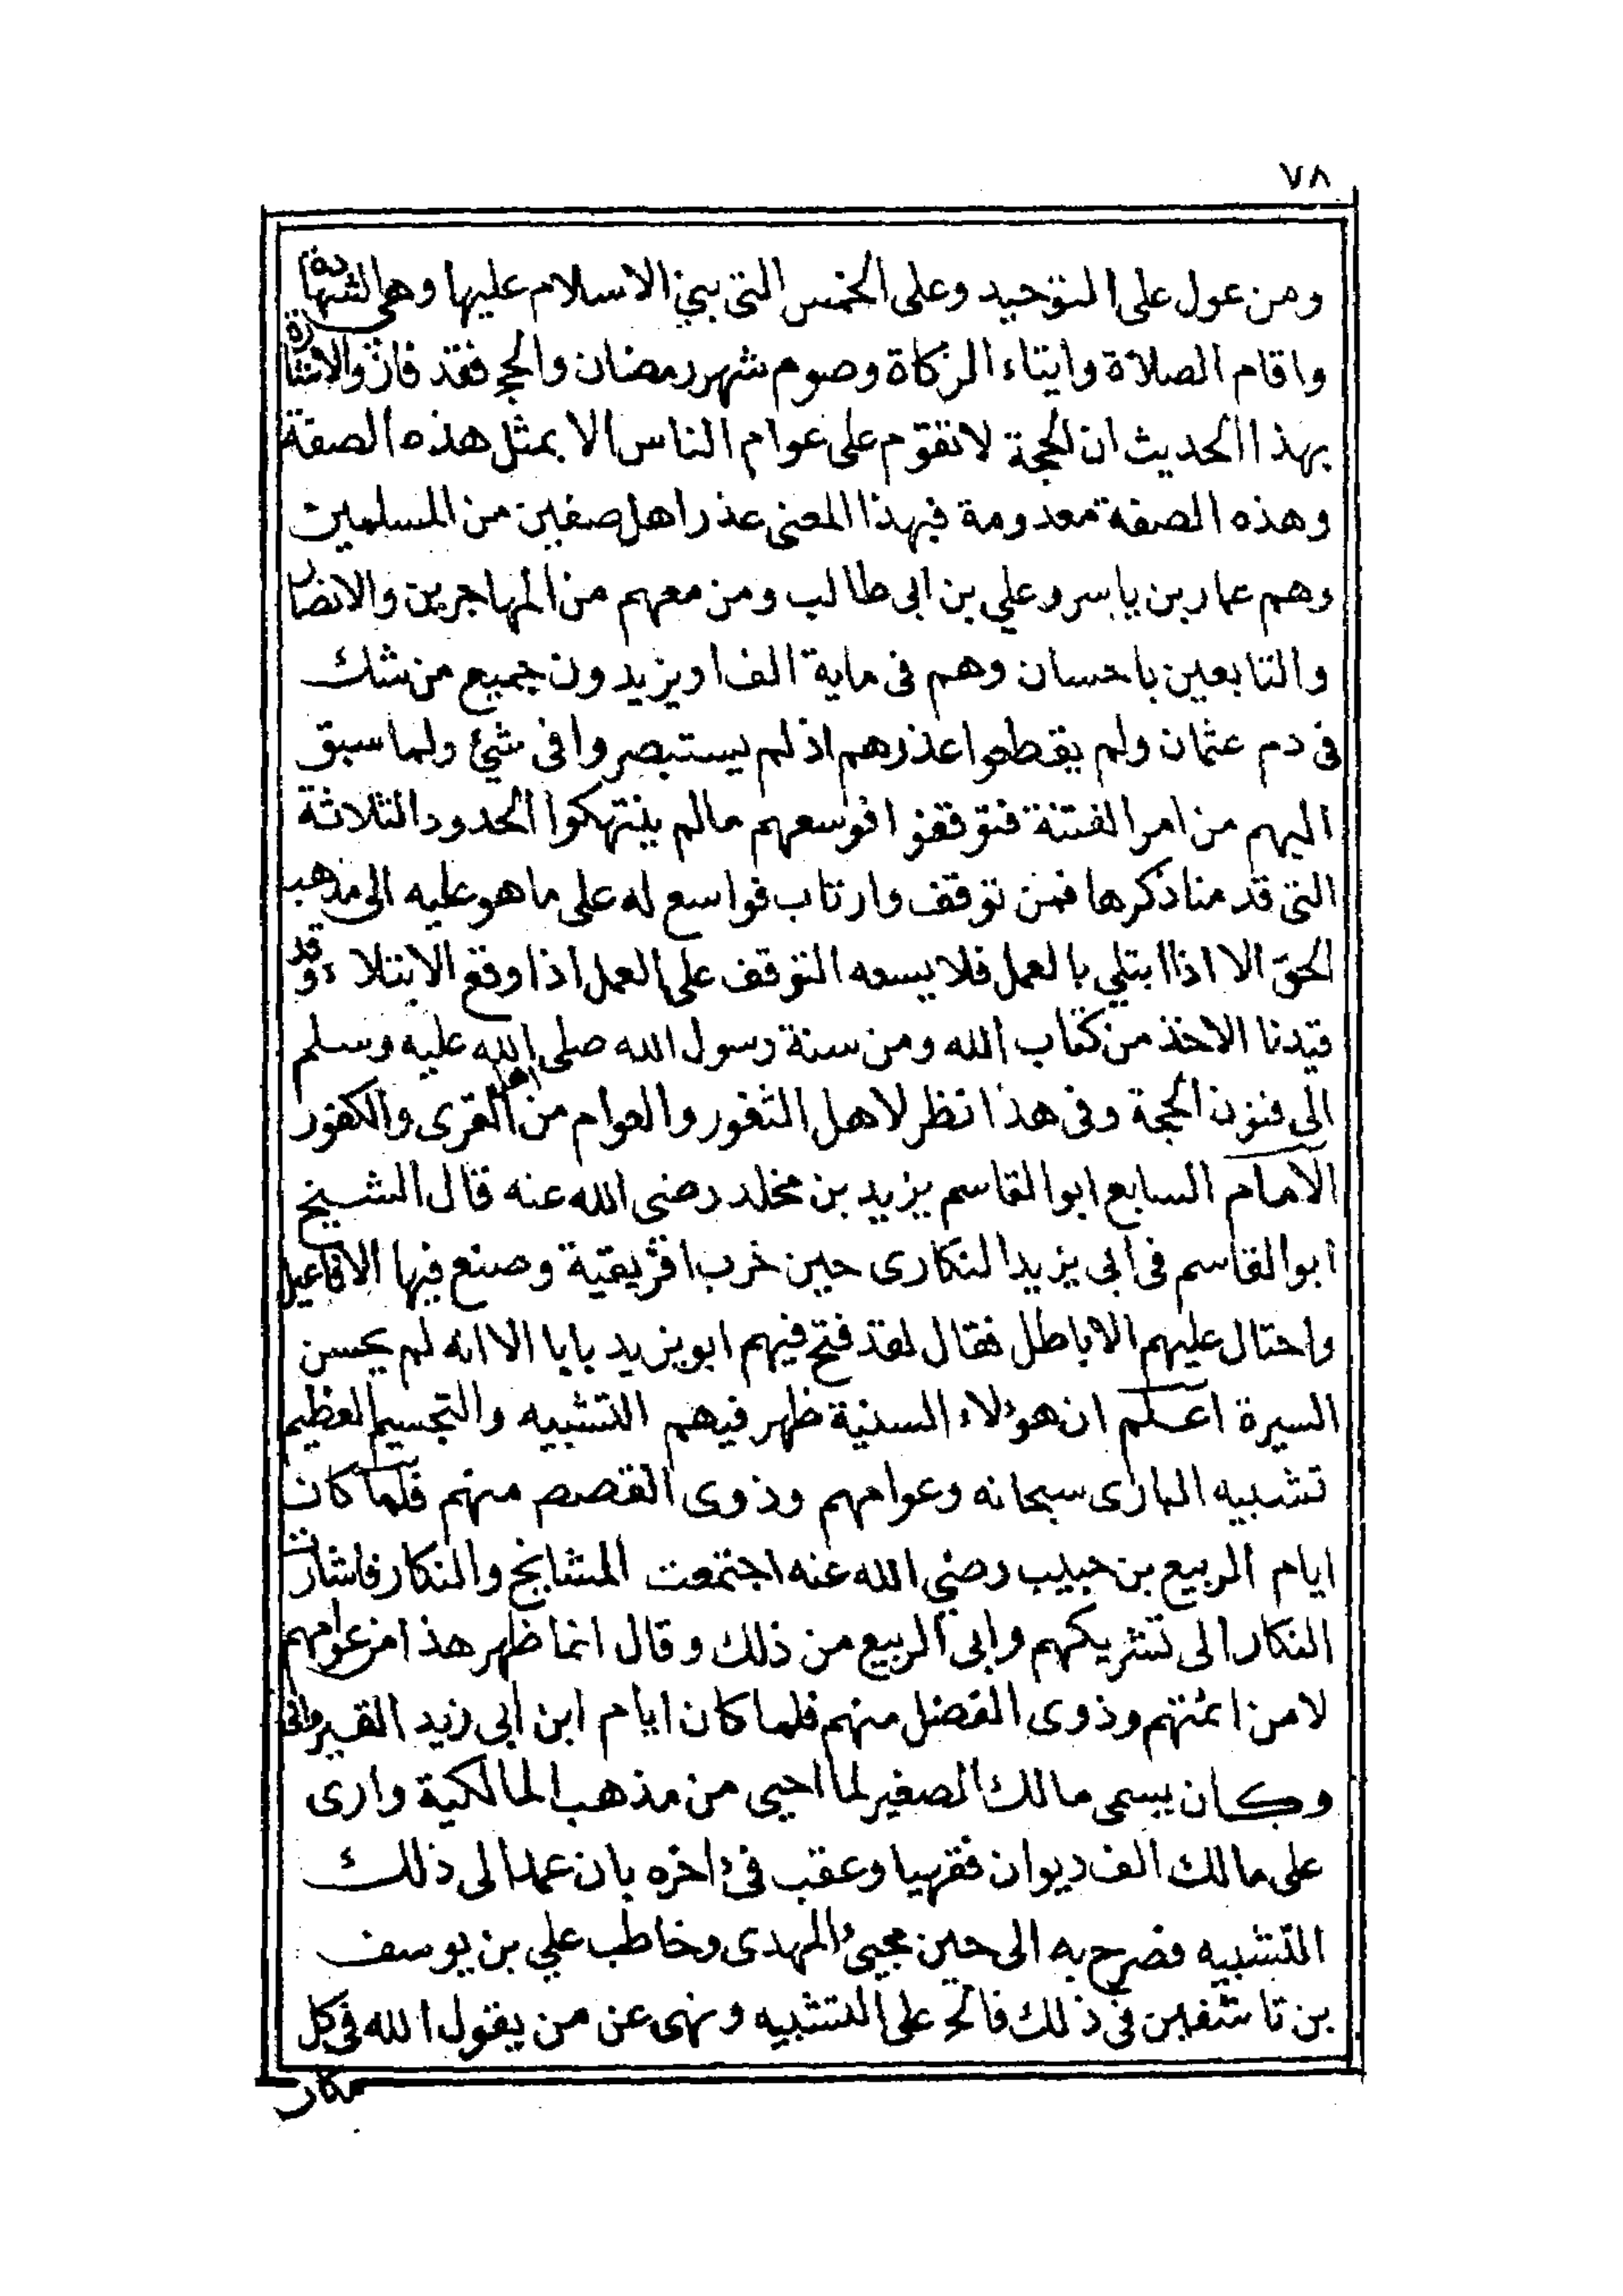 ٧٨
ومن عول على التوحيد وعلى الخمس التى بني الاسلام عليها وهي الشهادة
واقام الصلاة وايتاء الزكاة وصوم شهر رمضان والحج فقد فاز والاشارة
بهذا الحديث ان الحجة لا تقوم على عوام الناس الا بمثل هذه الصفة
وهذه الصفة معدومة فبهذا المعنى عذر اهل صفين من المسلمين
وهم عمار بن ياسر وعلي بن ابى طالب ومن معهم من المهاجرين والانصار
والتابعين باحسان وهم فى ماية الف او يزيدون جميع من شك
فى دم عثمان ولم يقطعوا عذرهم اذ لم يستبصروا فى شئ ولما سبق
اليهم من امر الفتنة فتوقفوا فوسعهم مالم ينتهكوا الحدود الثلاثة
التى قدمنا ذكرها فمن توقف وارتاب فواسع له على ما هو عليه الى مذهب
الحق الا اذا ابتلي بالعمل فلا يسعه التوقف على العمل اذا وقع الابتلاء وقد
قيدنا الاخذ من كتاب الله ومن سنة رسول الله صلى الله عليه وسلم
الى فنون الحجة وفى هذا نظر لاهل الثغور والعوام من اهل القرى والكفور
الامام السابع ابو القاسم يزيد بن مخلد رضى الله عنه قال الشيخ
ابو القاسم فى ابى يزيد النكارى حين خرب افريقية وصنع فيها الافاعيل
واحتال عليهم الاباطل فقال لقد فتح فيهم ابو يزيد بابا الا انه لم يحسن
السيرة اعلم ان هؤلاء السنية ظهر فيهم التشبيه والتجسيم العظيم
تشبيه البارى سبحانه وعوامهم وذوى القصص منهم فلما كان
ايام الربيع بن حبيب رضي الله عنه اجتمعت المشايخ والنكار فاشارت
النكار الى تشريكهم وابى الربيع من ذلك وقال انما ظهر هذا من عوامهم
لا من ائمتهم وذوى الفضل منهم فلما كان ايام ابن ابى زيد القيروانى
وكان يسمى مالك الصغير لما احيى من مذهب المالكية وارى
على مالك الف ديوان فقهيا وعقب فى ءاخره بان عمد الى ذلك
التشبيه فصرح به الى حين مجيئ المهدى وخاطب علي بن يوسف
بن تاشفين فى ذلك فالح على التشبيه ونهى عن من يقول الله فى كل
مكان